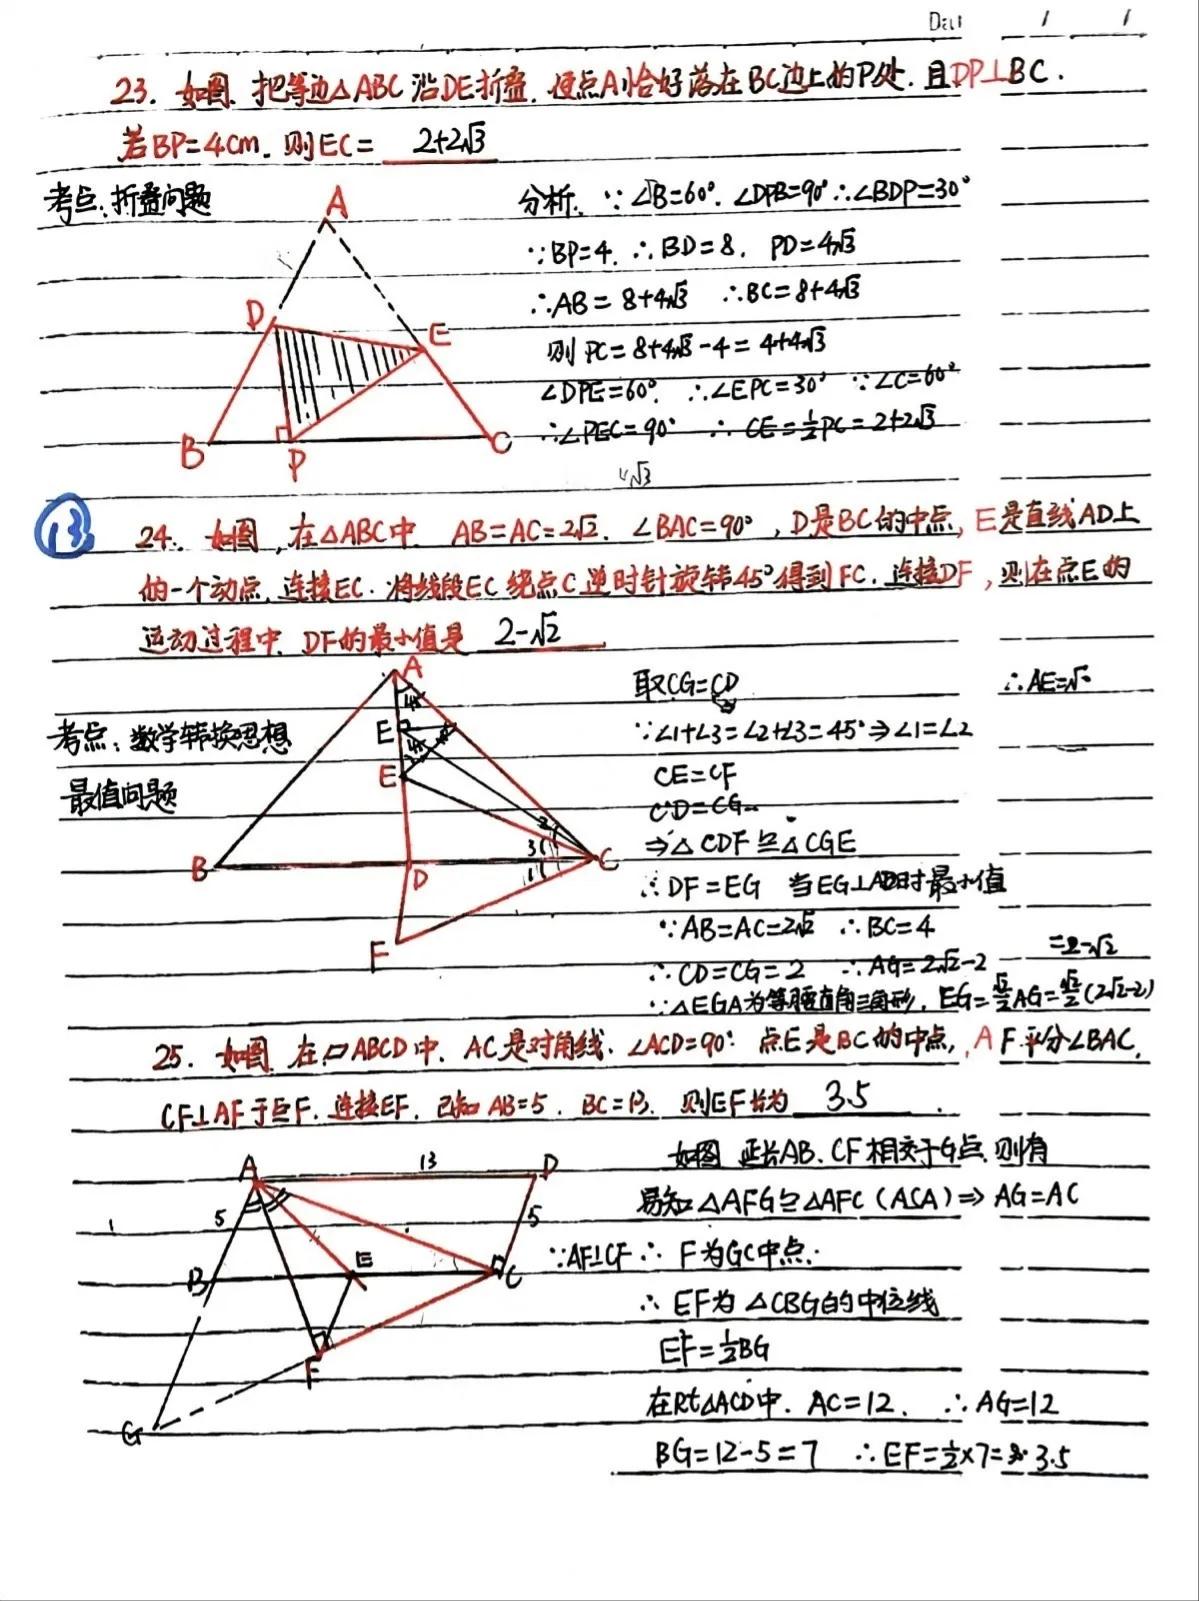 Dat / /
23. 如图. 把等边△ABC沿DE折叠. 使点A恰好落在BC边上的P处. 且DP⊥BC.
若BP=4cm. 则EC= 2+2√3
考点: 折叠问题
A
D
E
B
P
C
分析. ∵∠B=60°. ∠DPB=90° ∴∠BDP=30°
∵BP=4. ∴BD=8. PD=4√3
∴AB=8+4√3 ∴BC=8+4√3
则PC=8+4√3-4=4+4√3
∠DPE=60° ∴∠EPC=30° ∵∠C=60°
∴∠PEC=90° ∴CE=½PC=2+2√3
4√3
13
24. 如图, 在△ABC中. AB=AC=2√2. ∠BAC=90°, D是BC的中点, E是直线AD上
的一个动点, 连接EC. 将线段EC绕点C逆时针旋转45°得到FC. 连接DF, 则在点E的
运动过程中. DF的最小值是 2-√2
考点: 数学转换思想
最值问题
A
45
E
E
45
B
D
C
2
3
1
F
取CG=CD
∵∠1+∠3=∠2+∠3=45°⇒∠1=∠2
CE=CF
CD=CG
⇒△CDF≌△CGE
∴DF=EG 当EG⊥AD时最小值
∵AB=AC=2√2 ∴BC=4
∴CD=CG=2 ∴AG=2√2-2
∵△EGA为等腰直角三角形. EG=√2/2AG=√2/2(2√2-2)
=2-√2
25. 如图. 在▱ABCD中. AC是对角线. ∠ACD=90°. 点E是BC的中点, AF平分∠BAC,
CF⊥AF于点F. 连接EF. 已知AB=5. BC=13. 则EF长为 3.5 .
A
13
D
5
5
B
E
C
F
G
如图 延长AB、CF相交于G点. 则有
易知△AFG≌△AFC (ASA)⇒AG=AC
∵AF⊥CF ∴F为GC中点.
∴EF为△CBG的中位线
EF=½BG
在Rt△ACD中. AC=12. ∴AG=12
BG=12-5=7 ∴EF=½×7=3.5